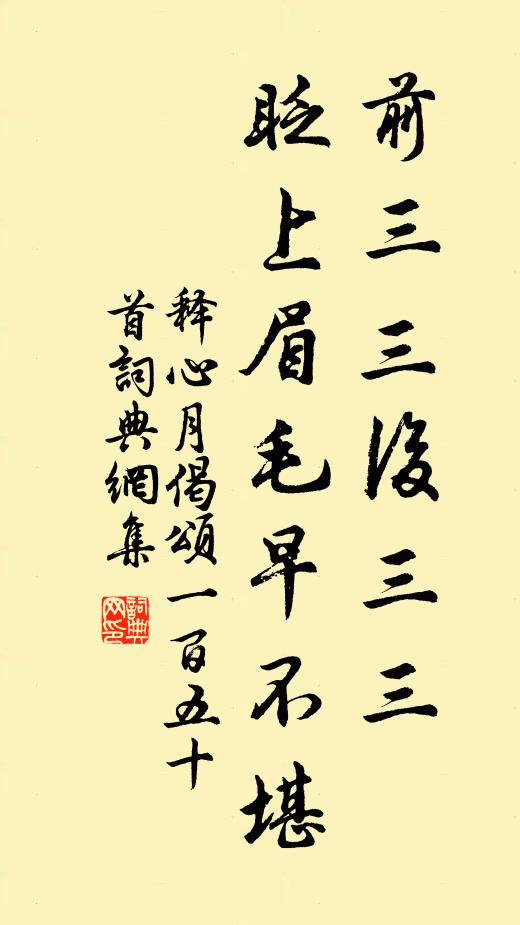 前三三後三三
眨上眉毛早不堪
释心月偈頌一百五十
首詞典網集
詞典
网印